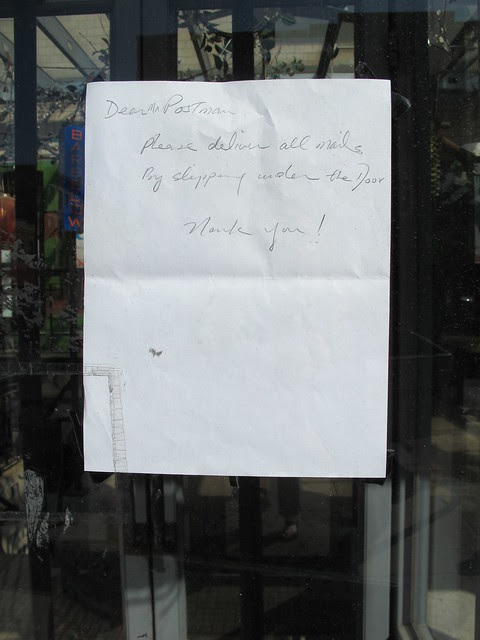 Dear Mr Postman
Please deliver all mails
By slipping under the Door
Thank you!